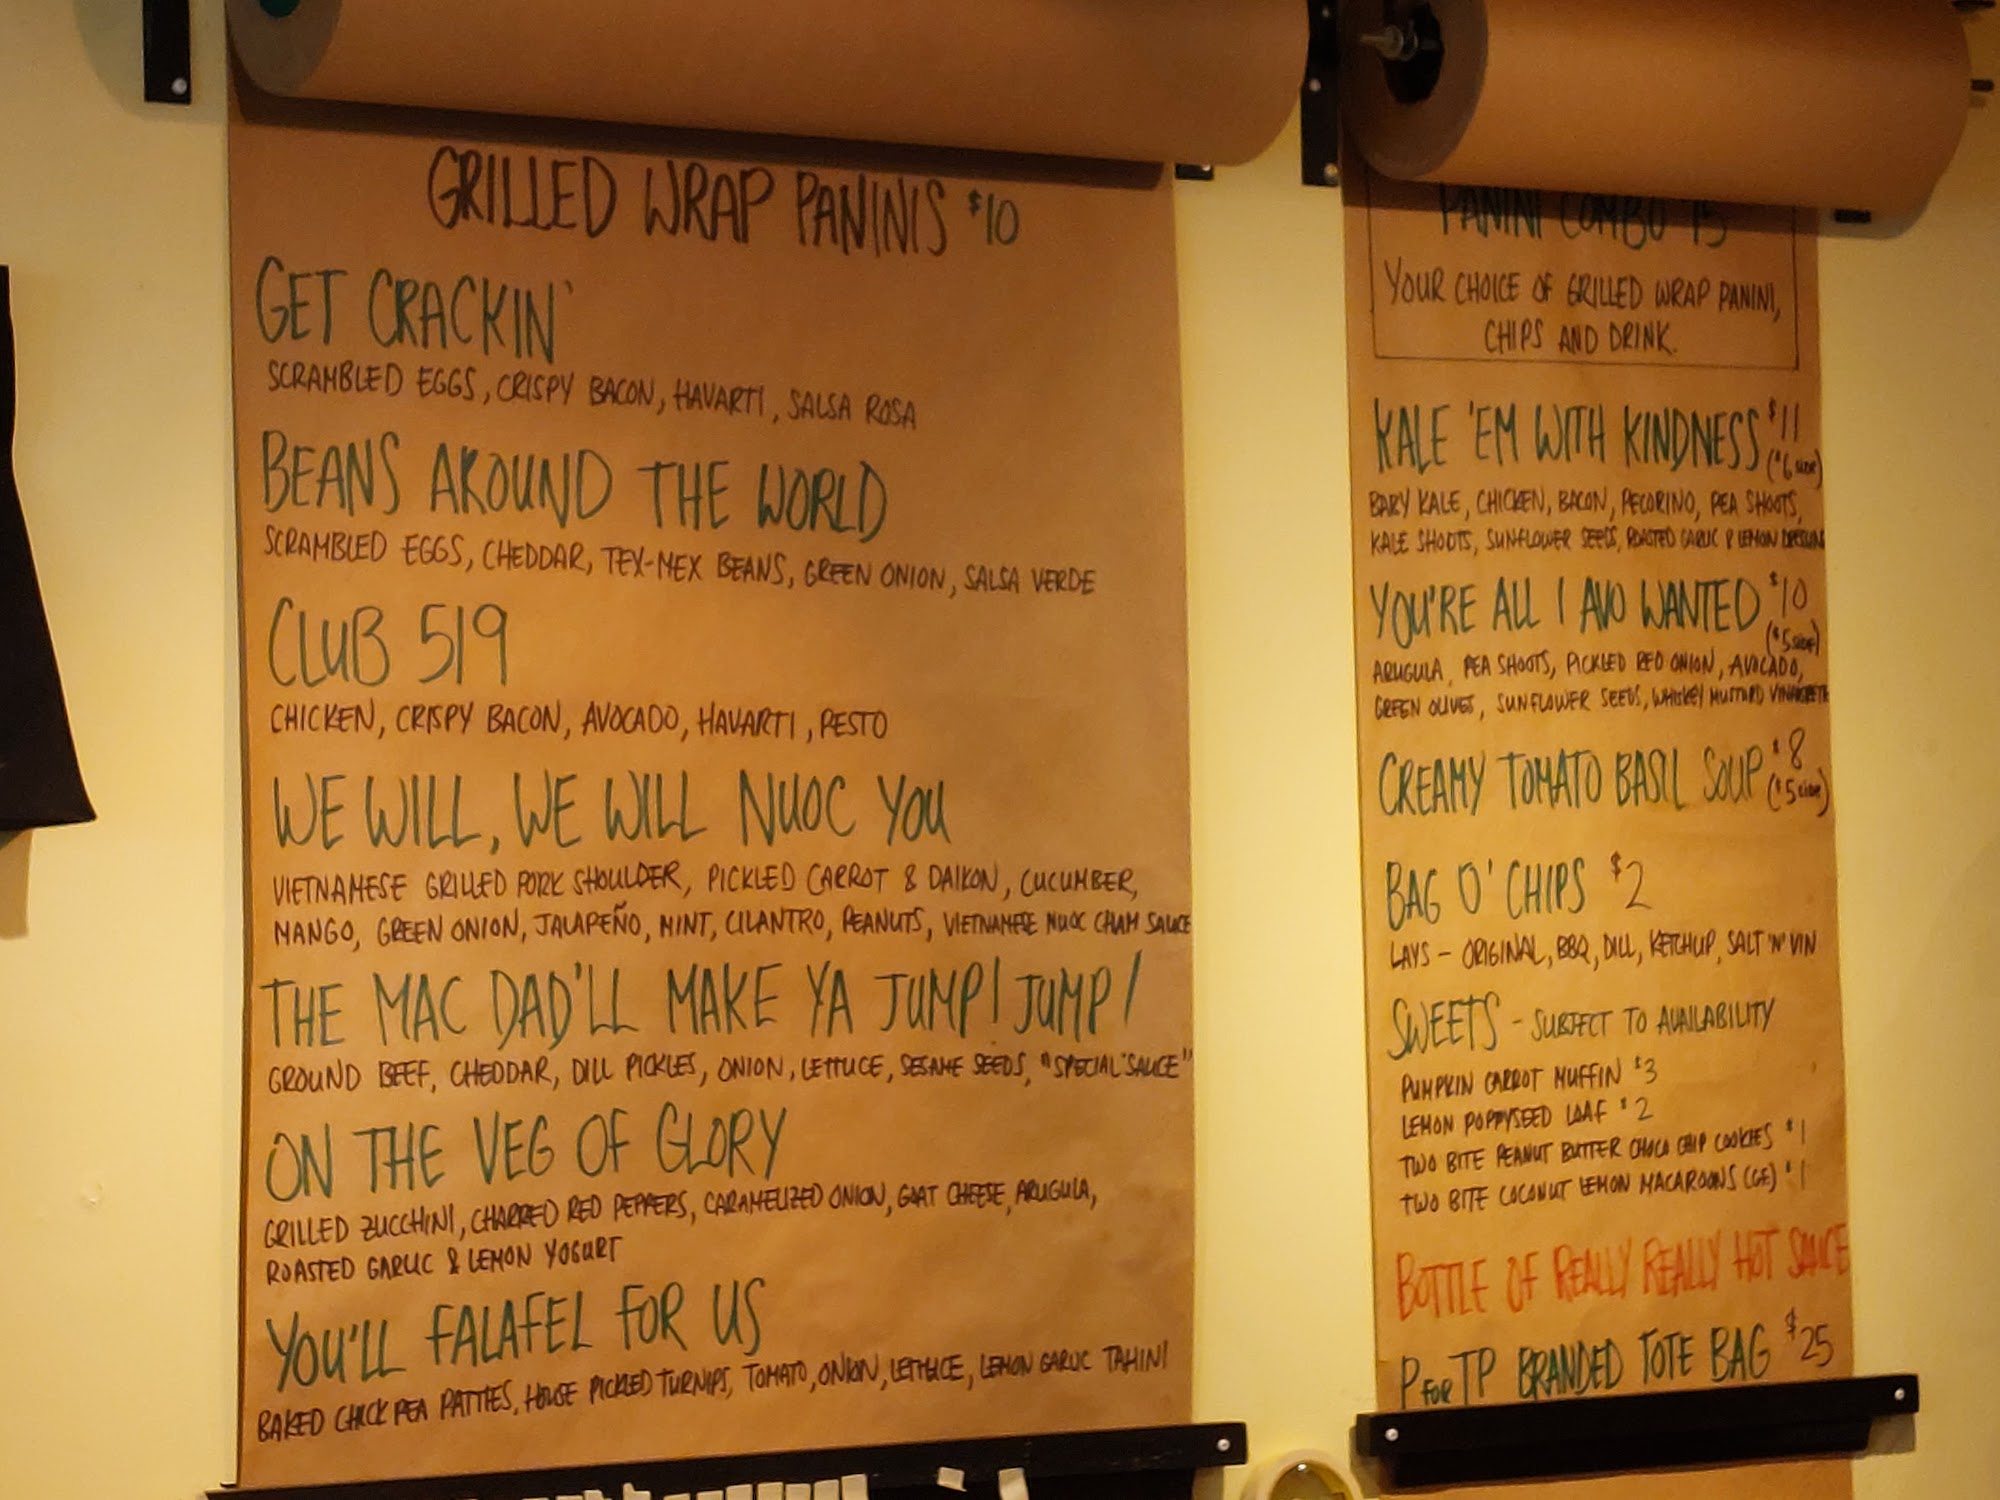 GRILLED WRAP PANINIS $10
GET CRACKIN'
SCRAMBLED EGGS, CRISPY BACON, HAVARTI, SALSA ROSA
BEANS AROUND THE WORLD
SCRAMBLED EGGS, CHEDDAR, TEX-MEX BEANS, GREEN ONION, SALSA VERDE
CLUB 519
CHICKEN, CRISPY BACON, AVOCADO, HAVARTI, PESTO
WE WILL, WE WILL NUOC YOU
VIETNAMESE GRILLED PORK SHOULDER, PICKLED CARROT & DAIKON, CUCUMBER,
MANGO, GREEN ONION, JALAPEÑO, MINT, CILANTRO, PEANUTS, VIETNAMESE NUOC CHAM SAUCE
THE MAC DAD'LL MAKE YA JUMP! JUMP!
GROUND BEEF, CHEDDAR, DILL PICKLES, ONION, LETTUCE, SESAME SEEDS, "SPECIAL SAUCE"
ON THE VEG OF GLORY
GRILLED ZUCCHINI, CHARRED RED PEPPERS, CARAMELIZED ONION, GOAT CHEESE, ARUGULA,
ROASTED GARLIC & LEMON YOGURT
YOU'LL FALAFEL FOR US
BAKED CHICK PEA PATTIES, HOUSE PICKLED TURNIPS, TOMATO, ONION, LETTUCE, LEMON GARLIC TAHINI
PANINI COMBO 15
YOUR CHOICE OF GRILLED WRAP PANINI,
CHIPS AND DRINK.
KALE 'EM WITH KINDNESS $11
($6 SIDE)
BABY KALE, CHICKEN, BACON, PECORINO, PEA SHOOTS,
KALE SHOOTS, SUNFLOWER SEEDS, ROASTED GARLIC & LEMON DRESSING
YOU'RE ALL I AVO WANTED $10
($5 SIDE)
ARUGULA, PEA SHOOTS, PICKLED RED ONION, AVOCADO,
GREEN OLIVES, SUNFLOWER SEEDS, WHISKEY MUSTARD VINAIGRETTE
CREAMY TOMATO BASIL SOUP $8
($5 SIDE)
BAG O' CHIPS $2
LAYS - ORIGINAL, BBQ, DILL, KETCHUP, SALT 'N' VIN
SWEETS - SUBJECT TO AVAILABILITY
PUMPKIN CARROT MUFFIN $3
LEMON POPPYSEED LOAF $2
TWO BITE PEANUT BUTTER CHOCO CHIP COOKIES $1
TWO BITE COCONUT LEMON MACAROONS (GF) $1
BOTTLE OF REALLY REALLY HOT SAUCE
P FOR TP BRANDED TOTE BAG $25